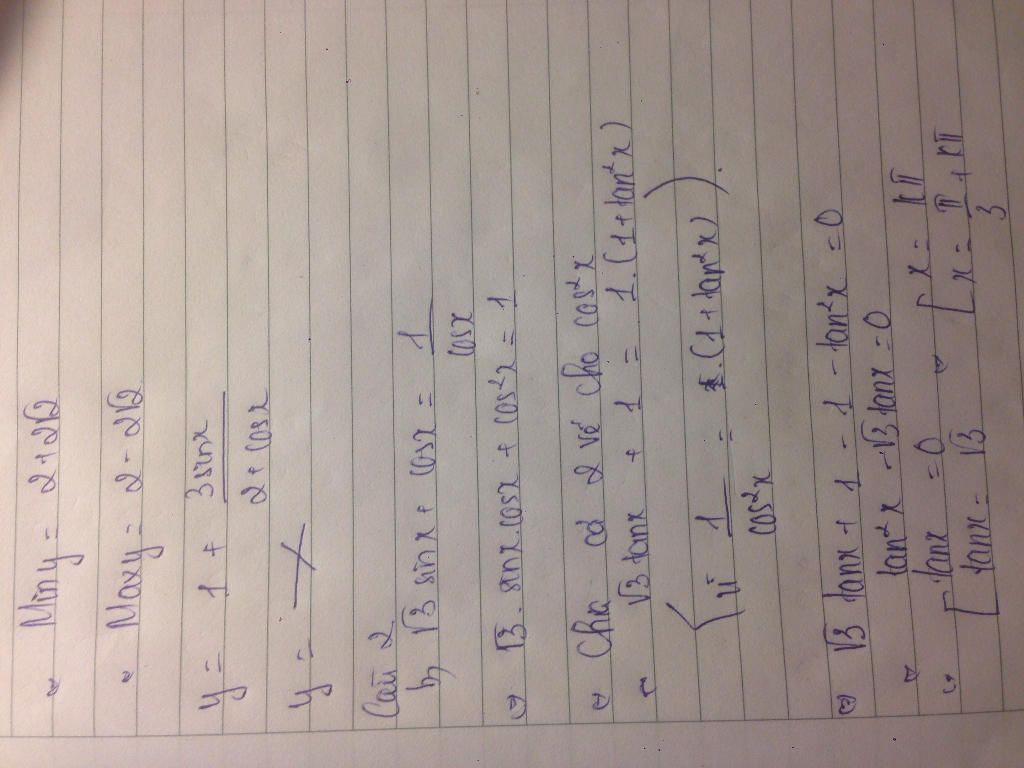 Min y = 2 + 2√2
Max y = 2 - 2√2
y = 1 + 3sinx / 2 + cosx
y =
Câu 2
b, √3 sinx + cosx = 1 / cosx
⇔ √3. sinx.cosx + cos²x = 1
⇔ Chia cả 2 vế cho cos²x
⇔ √3 tanx + 1 = 1.(1+tan²x)
(Vì 1 / cos²x = .(1+tan²x)).
⇔ √3 tanx + 1 - 1 - tan²x = 0
⇔ tan²x - √3 tanx = 0
⇔ [ tanx = 0 ⇔ [ x = kπ
[ tanx = √3 [ x = π/3 + kπ